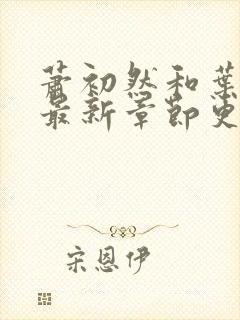 萧初然和葉
最新章節更
宋恩伊